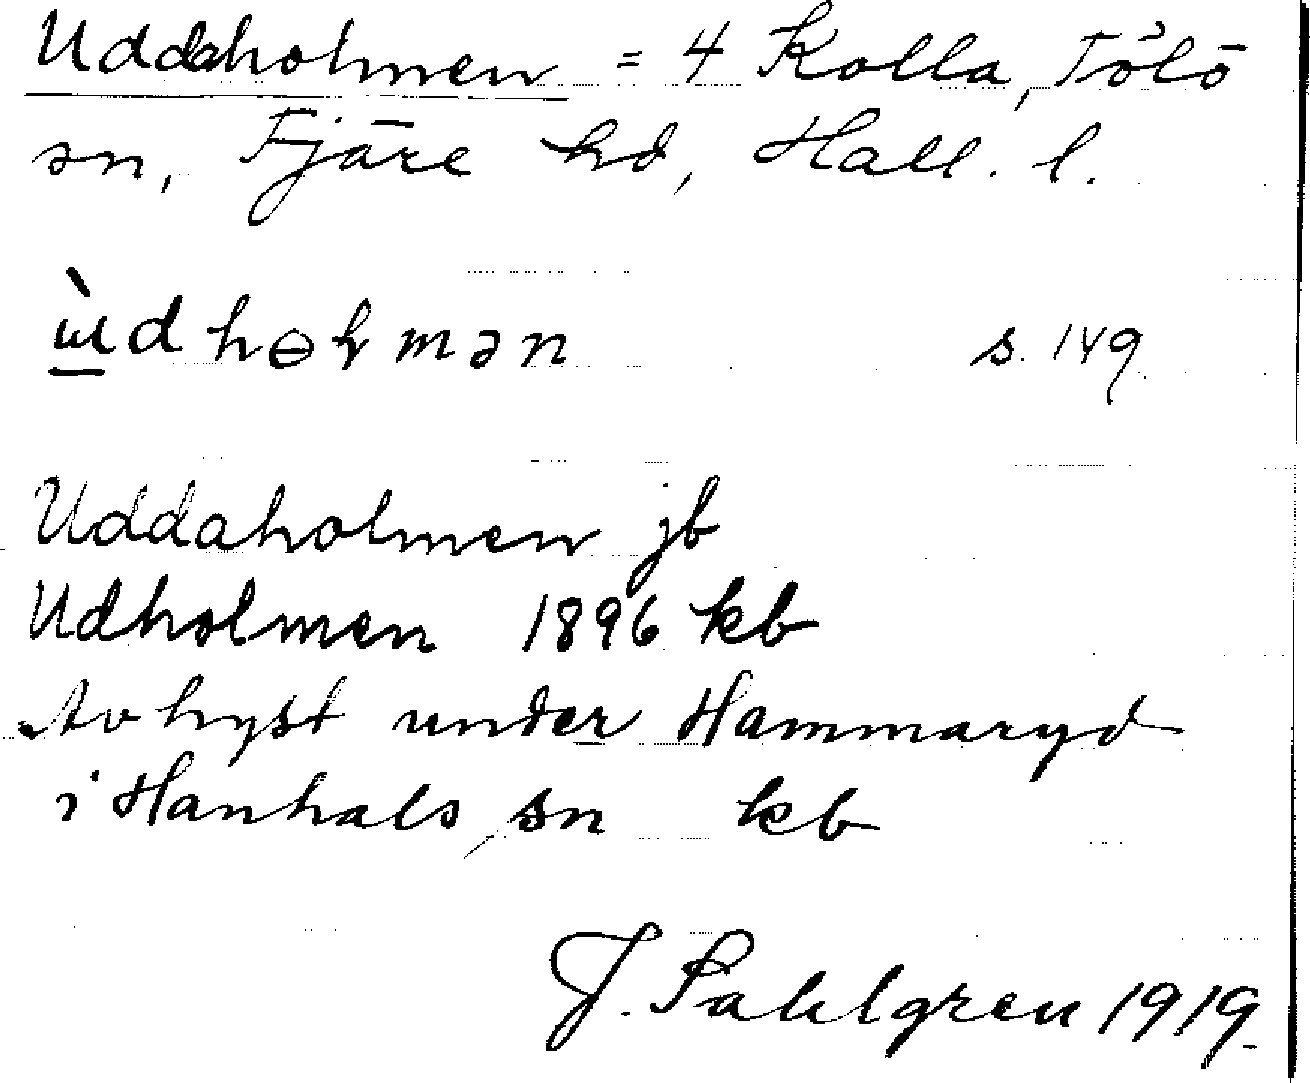 Uddaholmen = 4 Kolla, Tölö
sn, Fjäre hd, Hall. l.
s. 149
Uddaholmen jb
Udholmen 1896 kb
Avhyst under Hammaryd
i Hanhals sn kb
J. Sahlgren 1919